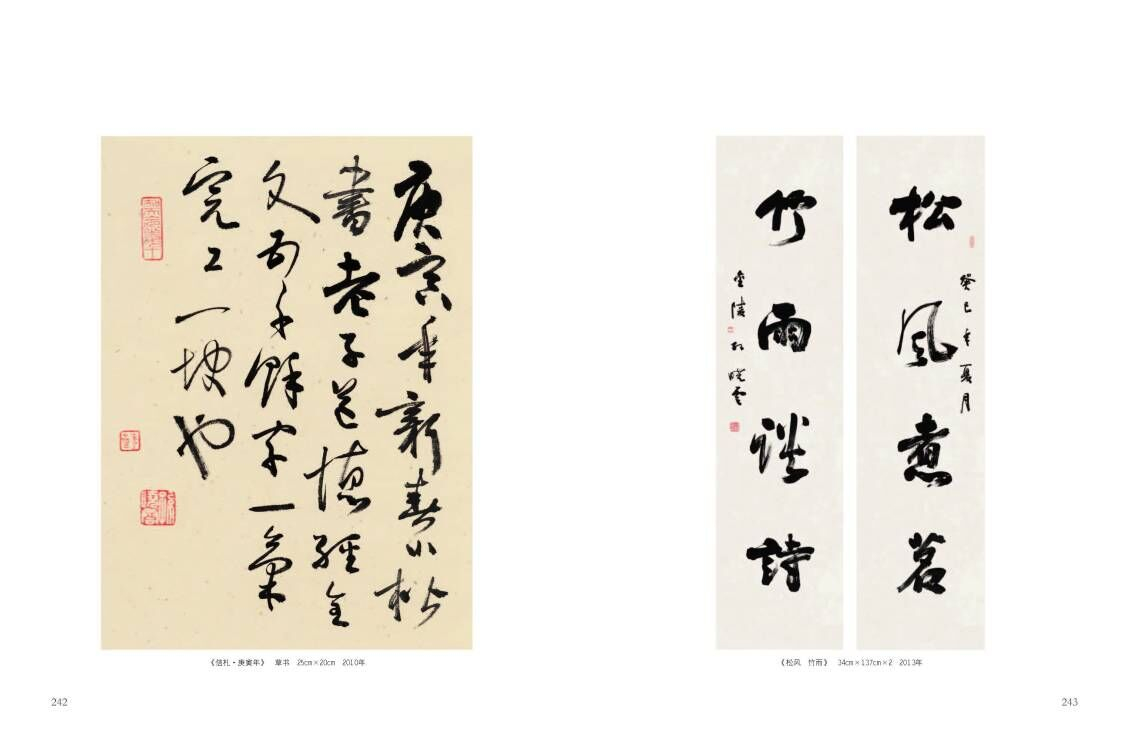 庚寅年新春小楷
書老子道德經全
文五千餘字一氣
完工一快也
《信札·庚寅年》 草书 25cm×20cm 2010年
242
松風煮茗
癸巳年夏月
竹雨談詩
胡曉雲
《松风 竹雨》 34cm×137cm×2 2013年
243